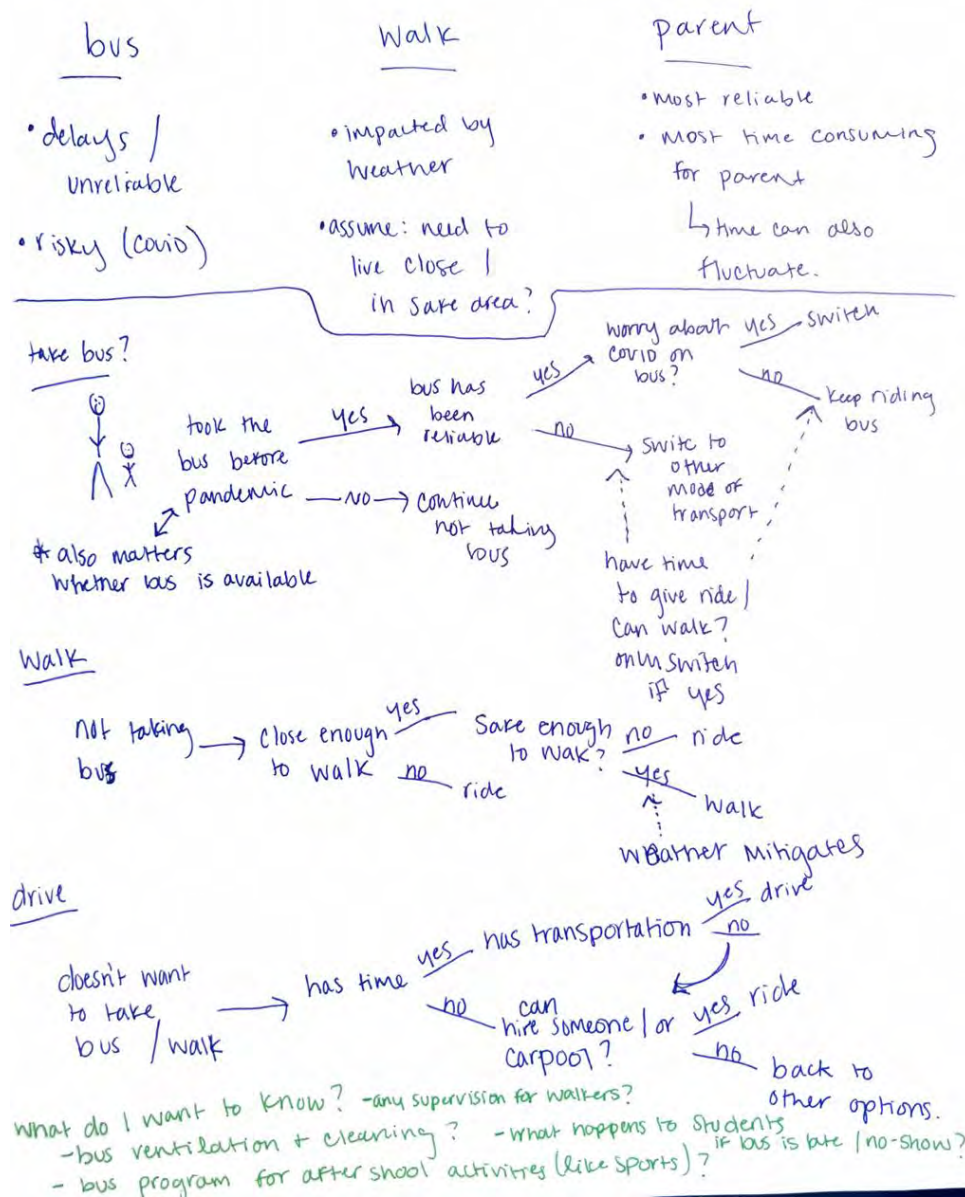 bus
• delays /
unreliable
• risky (covid)
walk
• impacted by
weather
• assume: need to
live close /
in safe area?
parent
• most reliable
• most time consuming
for parent
↳ time can also
fluctuate.
take bus?
took the
bus before
pandemic
yes
bus has
been
reliable
yes
worry about
COVID on
bus?
yes
switch
no
keep riding
bus
no
switc to
other
mode of
transport
NO
continue
not taking
bus
* also matters
whether bus is available
have time
to give ride /
can walk?
only switch
if yes
walk
not taking
bus
close enough
to walk
yes
no
ride
safe enough
to wak?
no
ride
yes
walk
weather mitigates
drive
doesn't want
to take
bus / walk
has time
yes
has transportation
yes
drive
no
no
can
hire someone / or
carpool?
yes
ride
no
back to
other options.
what do I want to know? -any supervision for walkers?
-bus ventilation + cleaning? -what happens to students
if bus is late / no-show?
- bus program for after shool activities (like sports)?